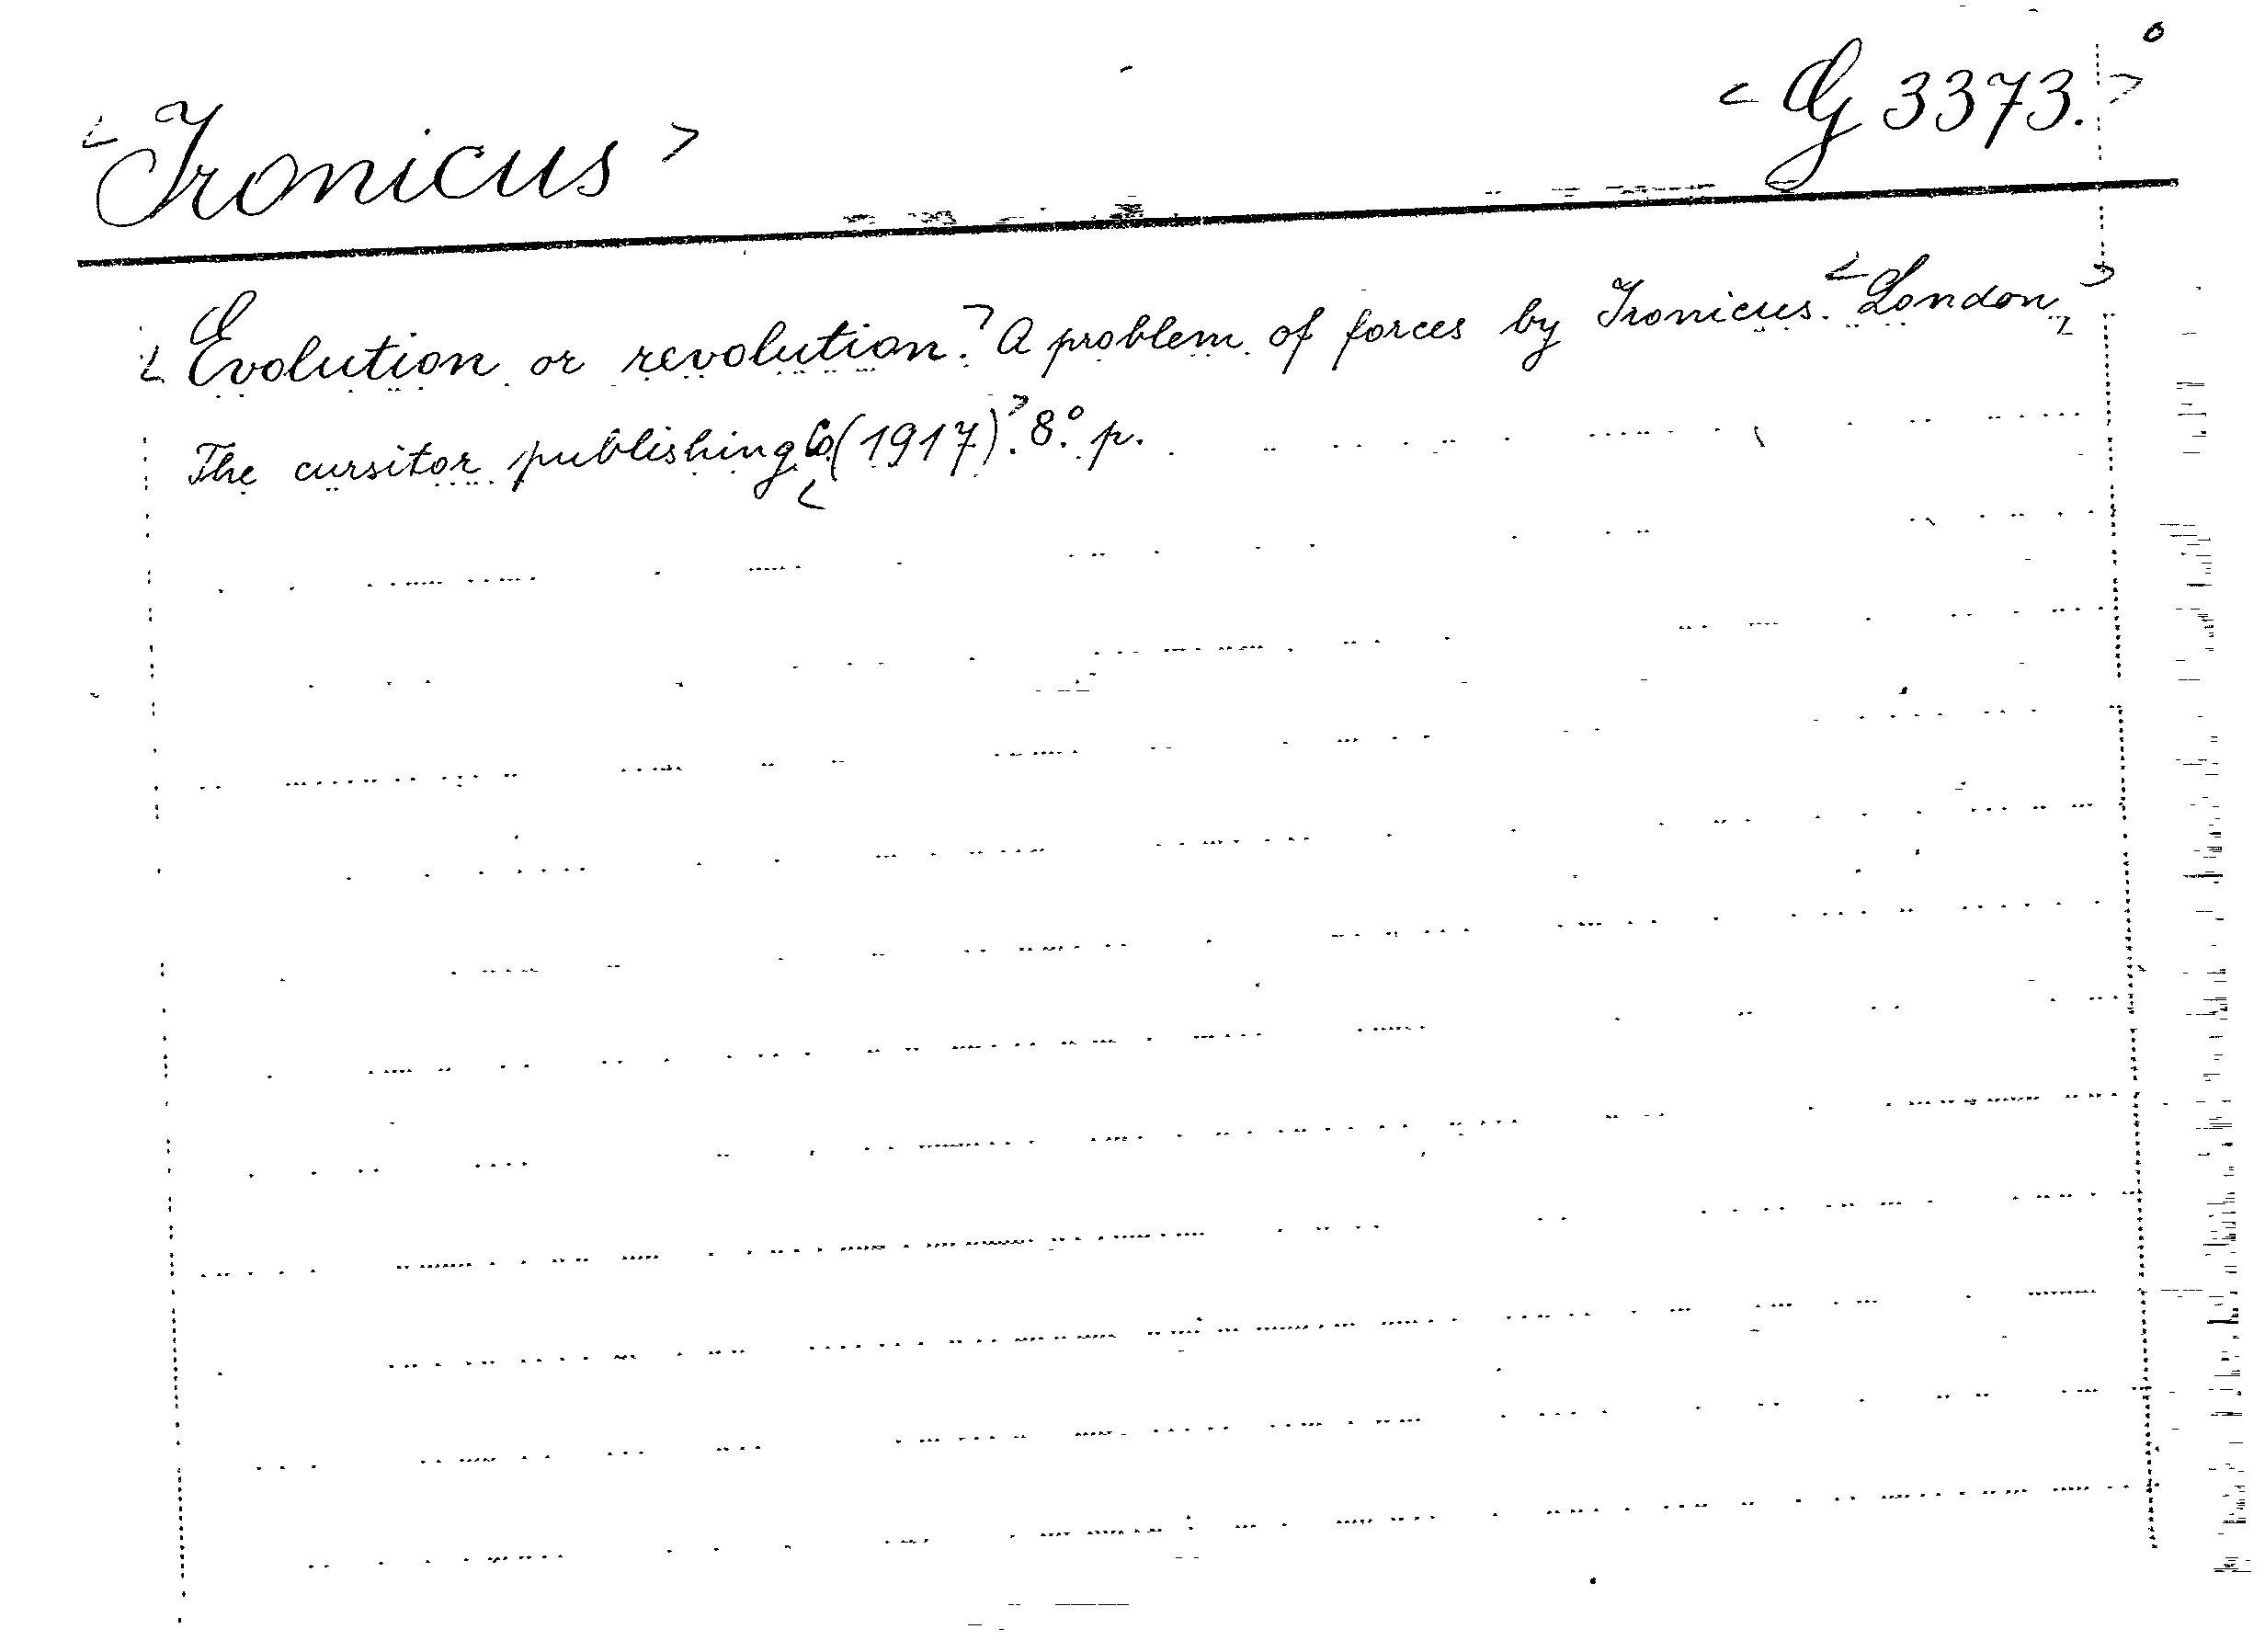 <Ironicus> <G 3373.>°
<Evolution or revolution?> A problem of forces by Ironicus. <London,>
The cursitor publishing <Co. (1917)>. 8.° p.